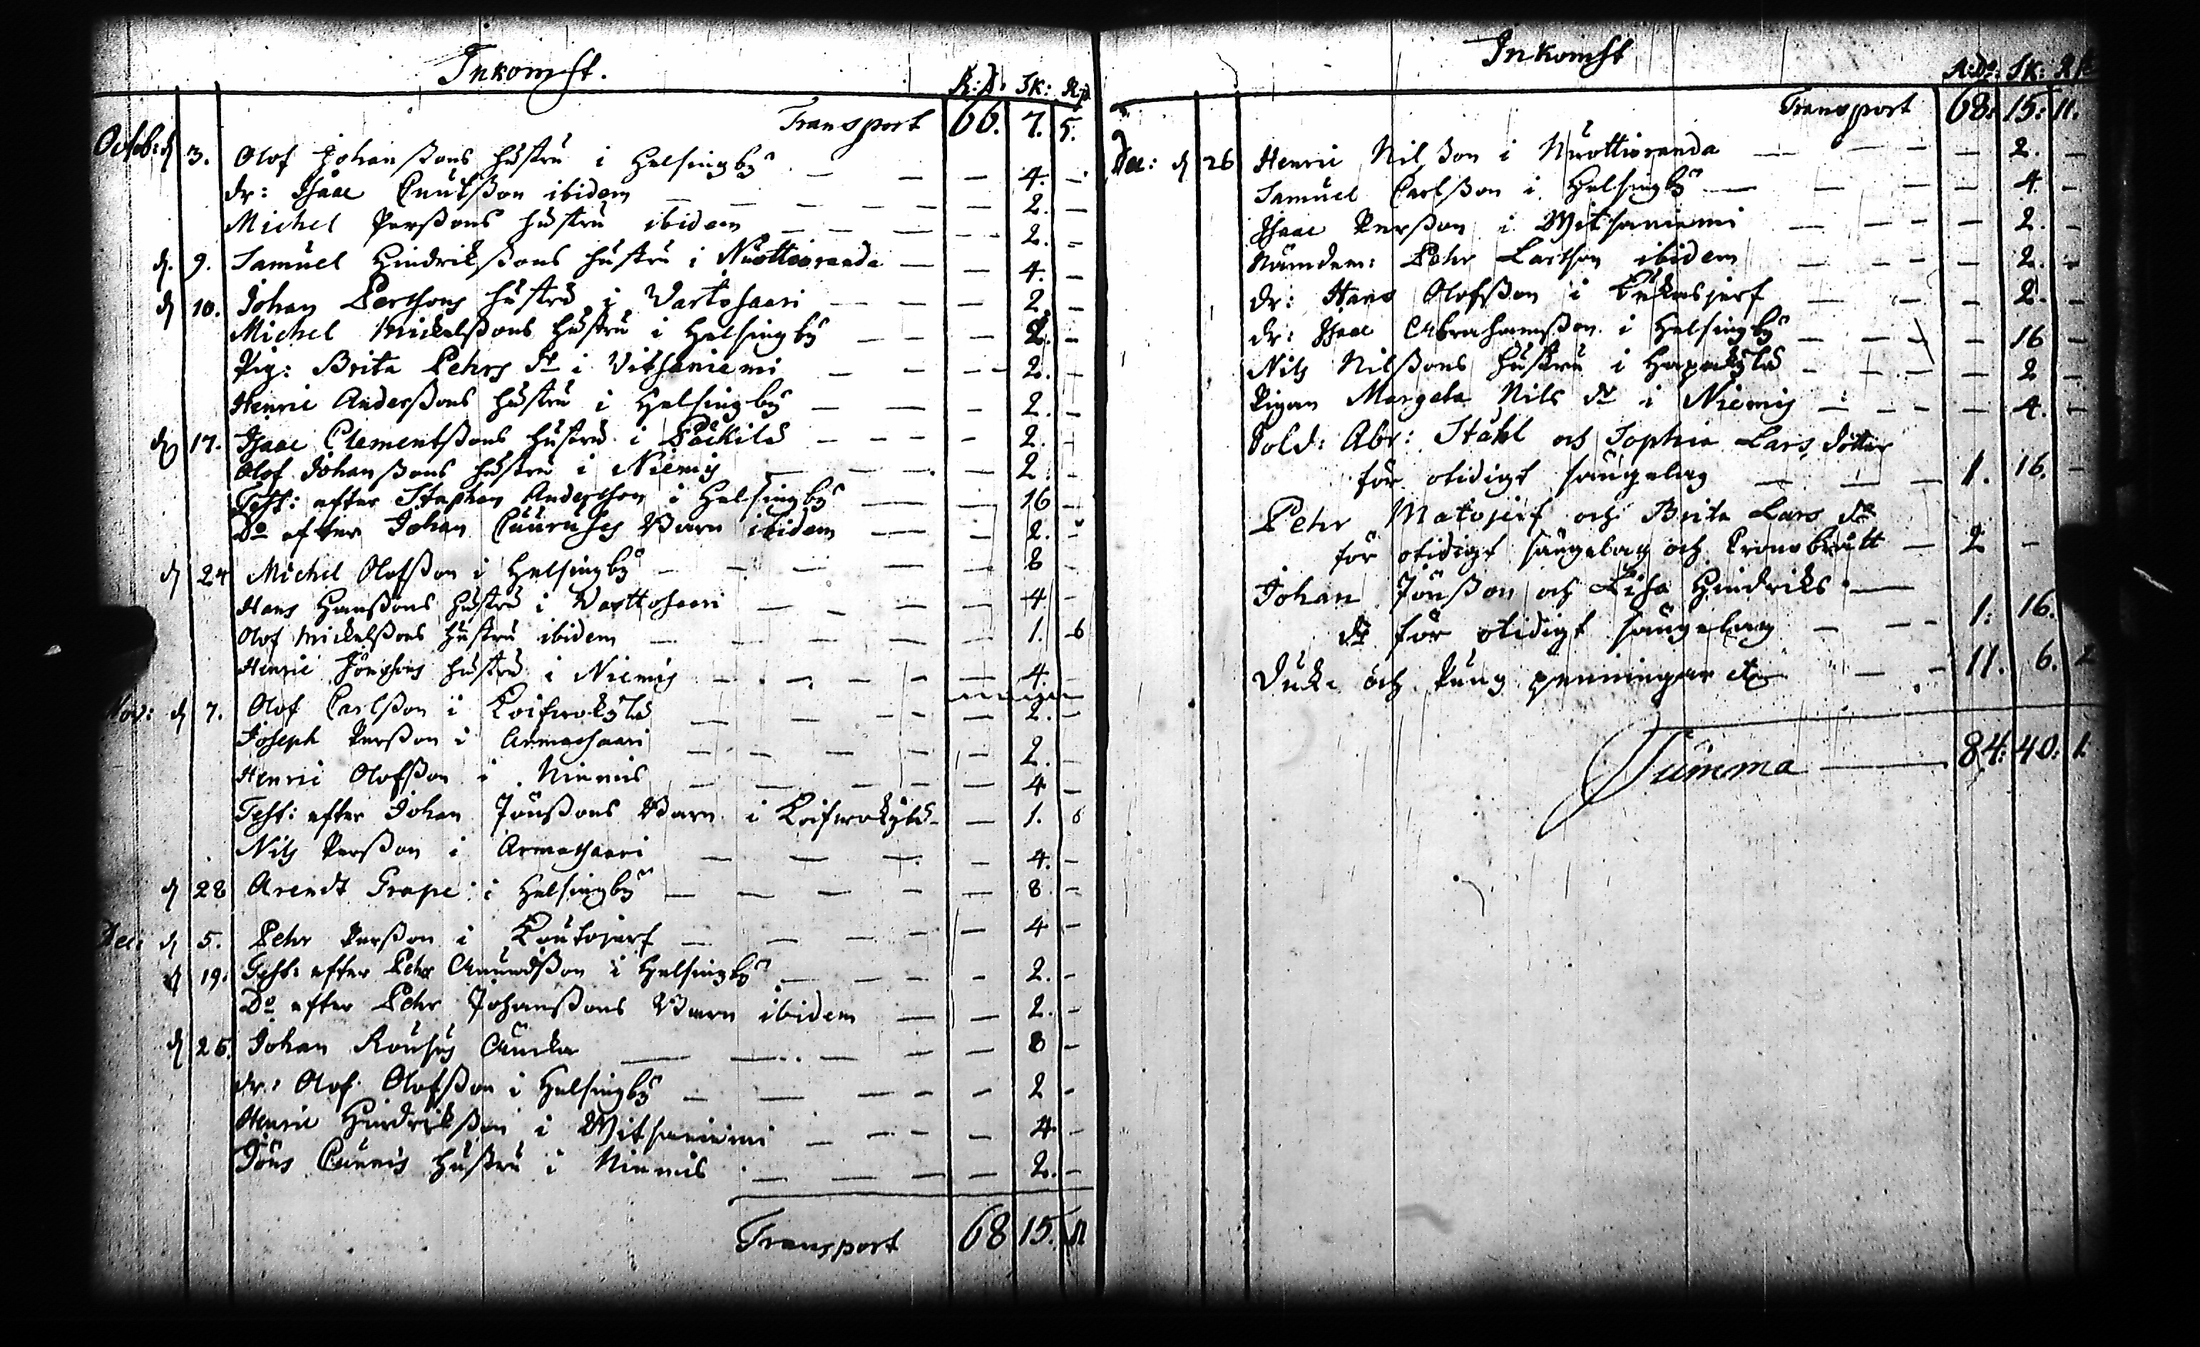 Inkomst.
R:d: Sk: Rp
Transport 66. 7. 5.
Octob: d 3. Olof Johanßons hustru i Helsingby — — — 4. -
dr: Isaac Knutsson ibidem — — — 2. —
Michel Perßons hustru ibidem — — — 2. -
d. 9. Samuel Hindrikßons hustru i Nuottioranda — — 4. -
d 10. Johan Perssons hustru i Vartosaari — — — 2. -
Michel Mickelßons hustru i Helsingby — — — 2. -
Pig: Brita Pehrs dr i Vitsaniemi — — — 2. -
Henric Anderßons hustru i Helsingby — — — 2. -
d 17. Isaac Clementßons hustru i Päckilä — — — 2. -
Olof Johanßons hustru i Niemis — — — 2. -
Test: efter Stephan Andersson i Helsingby — — 16 -
Do efter Johan Barn ibidem — — 2. -
d 24 Michel Olofßon i Helsingby — — — 8 -
Hans Hansßons hustru i Varttosaari — — — 4 -
Olof Mickelßons hustru ibidem — — — 1. 6
Henric Jönssons hustru i Niemis — — — 4. -
Nov: d 7. Olof Carlßon i — — — 2. -
Joseph Perßon i Armasaari — — — 2. -
Henric Olofßon i Niemis — — — 4 -
Test: efter Johan Jönßons Barn i — 1. 6
Nils Perßon i Armasaari — — — 4. -
d 28 Arendt Grape i Helsingby — — — 8 -
Dec: d 5. Pehr Perßon i Koutojerf — — — 4 -
d 19. Test: efter Pehr Amundßon i Helsingby — — 2. -
Do efter Pehr Johanßons Barn ibidem — — 2. -
d 26. Johan Rousus — — — 8 -
dr: Olof Olofßon i Helsingby — — — 2 -
Henric Hindrikßon i Witsaniemi — — — 4 -
Jöns hustru i Niemis — — — 2. -
Transport 68 15. 11
Inkomst
R:dr: Sk: R
Transport 68. 15. 11.
Dec: d 26 Henric Nilßon i Nuottioranda — — — 2. —
Samuel Carlßon i Helsingby — — — 4. -
Isaac Perßon i Witsaniemi — — — 2. -
Nämdem: Pehr Larsson ibidem — — — 2. -
dr: Hans Olofßon i — — — 2. -
dr: Isaac Abrahamßon i Helsingby — — — 16 -
Nils Nilßons hustru i Haapakylä — — — 2 -
Pigan Margeta Nils dr i Niemis — — — 4. -
Sold: Abr: Stähl och Sophia Lars dotter
för otidigt sängelag — — — 1. 16. -
Pehr Matojerf och Brita Lars dr
för otidigt sängelag och Kronobrått — 2 -
Johan Jönßon och Lisa Hindriks —
dr för otidigt sängelag — — 1: 16.
och Pung penningar — — 11. 6. 2
Summa — 84. 40. 1